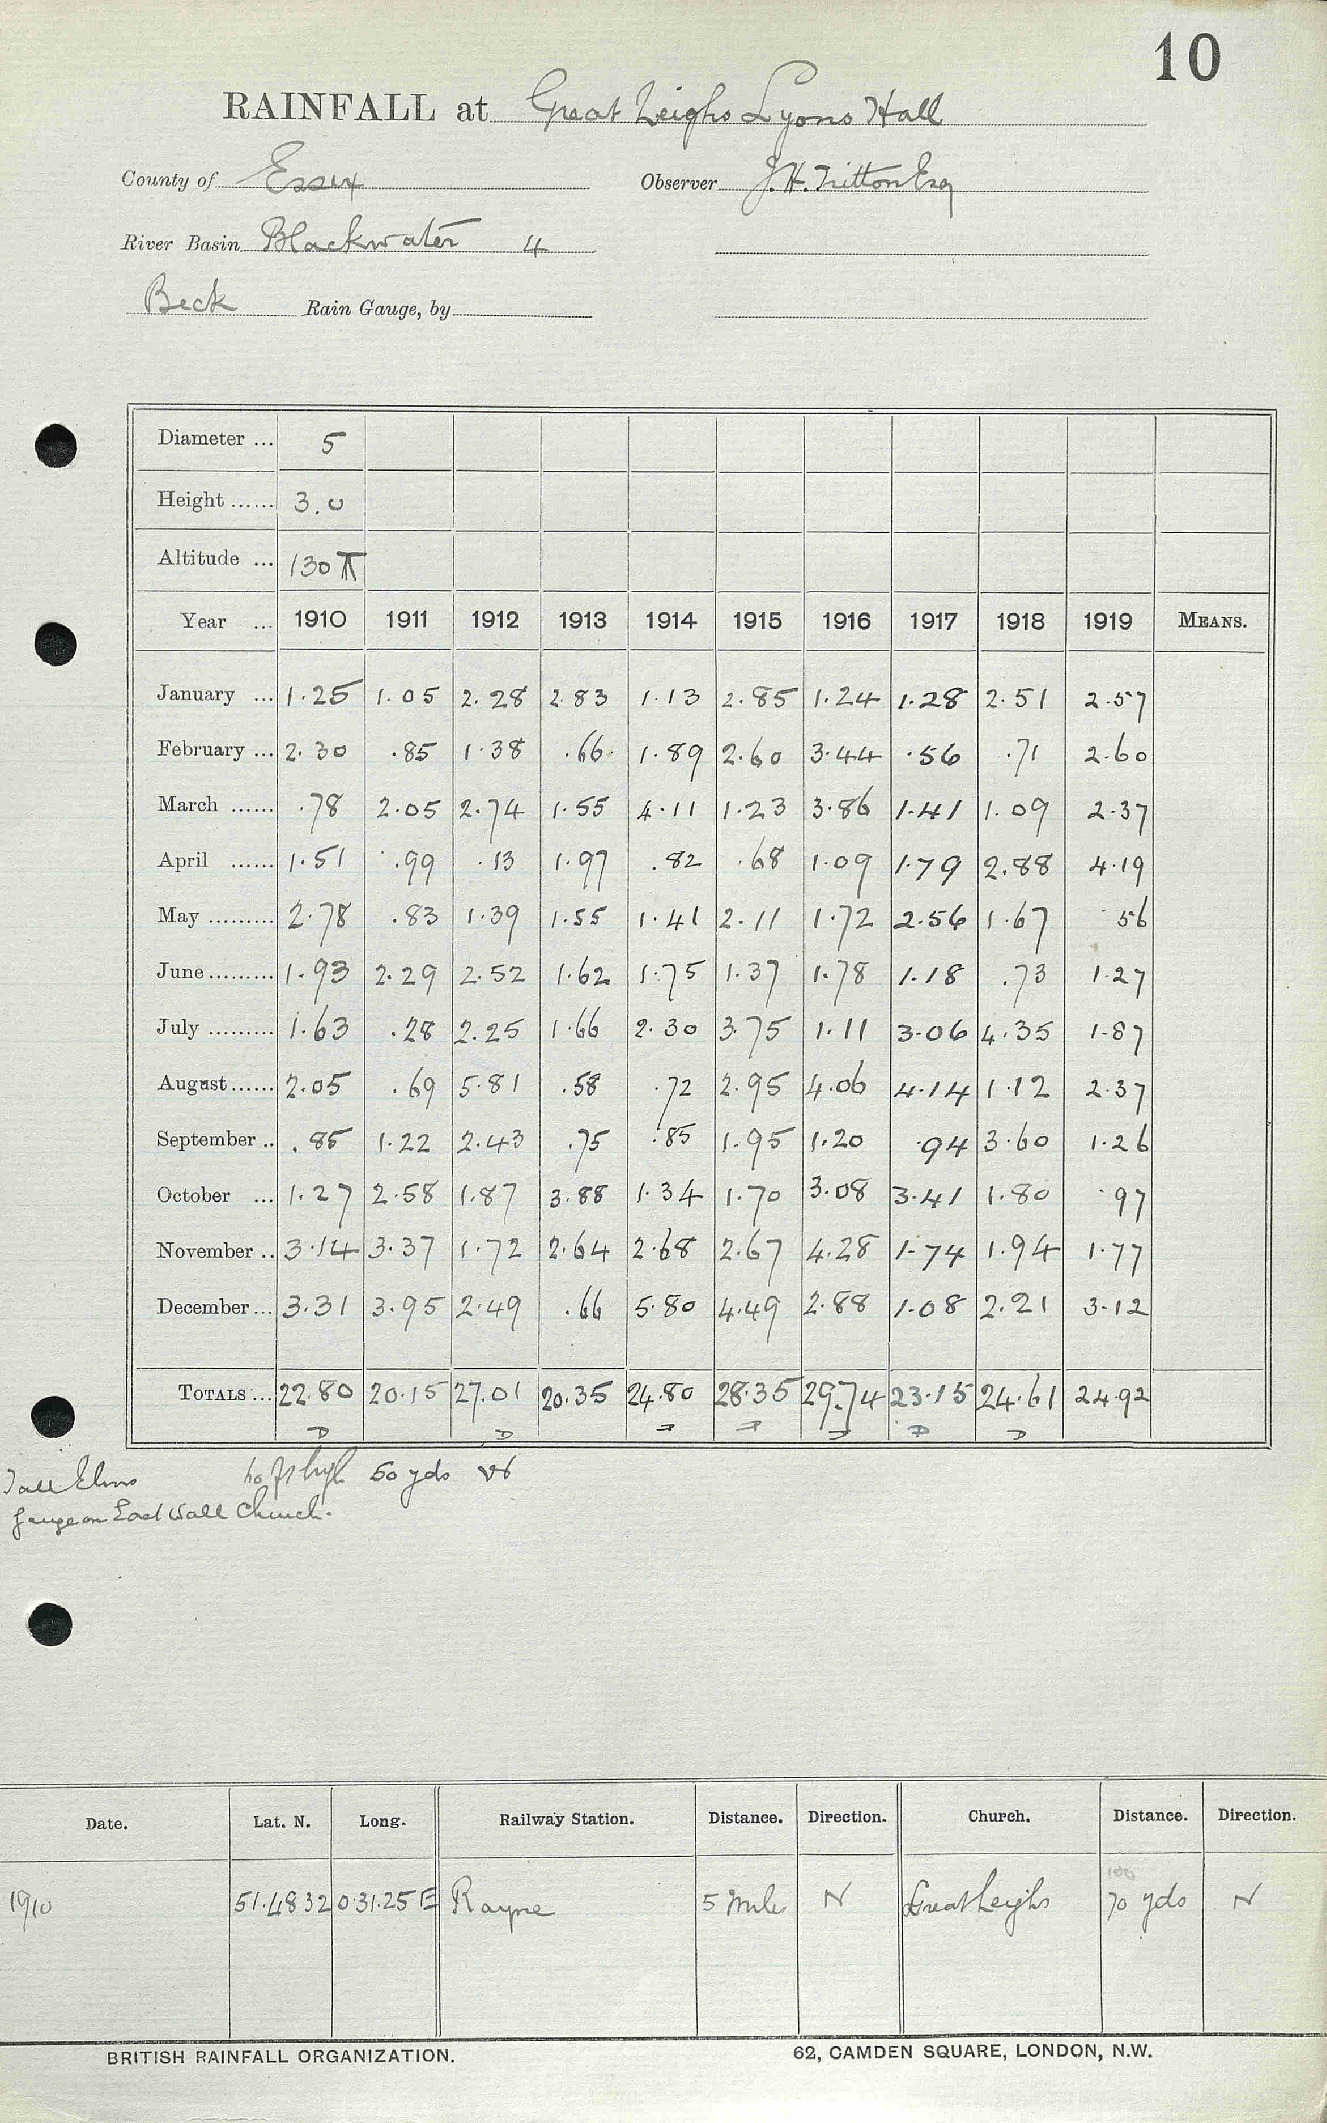 10
RAINFALL at Great Leighs Lyons Hall
County of Essex Observer J.H. Tritton Esq
River Basin Blackwater 4
Beck Rain Gauge, by
Diameter ... 5
Height ...... 3.0
Altitude ... 130
Year ... 1910 1911 1912 1913 1914 1915 1916 1917 1918 1919 MEANS.
January ... 1.25 1.05 2.28 2.83 1.13 2.85 1.24 1.28 2.51 2.57
February ... 2.30 .85 1.38 .66 1.89 2.60 3.44 .56 .71 2.60
March ...... .78 2.05 2.74 1.55 4.11 1.23 3.86 1.41 1.09 2.37
April ...... 1.51 .99 .13 1.97 .82 .68 1.09 1.79 2.88 4.19
May ......... 2.78 .83 1.39 1.55 1.41 2.11 1.72 2.56 1.67 .56
June ......... 1.93 2.29 2.52 1.62 1.75 1.37 1.78 1.18 .73 1.27
July ......... 1.63 .28 2.25 1.66 2.30 3.75 1.11 3.06 4.35 1.87
August ...... 2.05 .69 5.81 .58 .72 2.95 4.06 4.14 1.12 2.37
September .. .85 1.22 2.43 .75 .85 1.95 1.20 .94 3.60 1.26
October ... 1.27 2.58 1.87 3.88 1.34 1.70 3.08 3.41 1.80 .97
November .. 3.14 3.37 1.72 2.64 2.68 2.67 4.28 1.74 1.94 1.77
December ... 3.31 3.95 2.49 .66 5.80 4.49 2.88 1.08 2.21 3.12
TOTALS ... 22.80 20.15 27.01 20.35 24.80 28.35 29.74 23.15 24.61 24.92
Tall Elms 60 ft high 50 yds
gauge on East Wall Church.
Date. Lat. N. Long. Railway Station. Distance. Direction. Church. Distance. Direction.
100
1910 51.48 32 0.31.25 E Rayne 5 mile N Great Leighs 70 yds N
BRITISH RAINFALL ORGANIZATION. 62, CAMDEN SQUARE, LONDON, N.W.